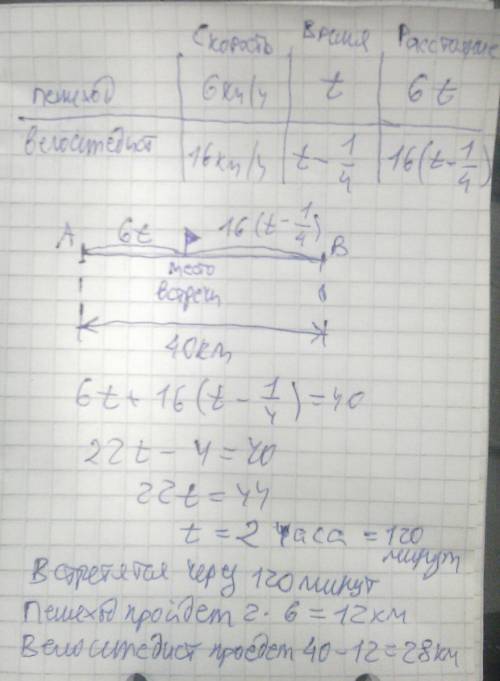 Скорость Время Расстояние
пешеход 6км/ч t 6t
велосипедист 16км/ч t - 1/4 16(t - 1/4)
A 6t 16(t - 1/4) B
место
встречи
40км
6t + 16(t - 1/4) = 40
22t - 4 = 40
22t = 44
t = 2 часа = 120
минут
Встретятся через 120 минут
Пешеход пройдет 2 · 6 = 12км
Велосипедист проедет 40 - 12 = 28км